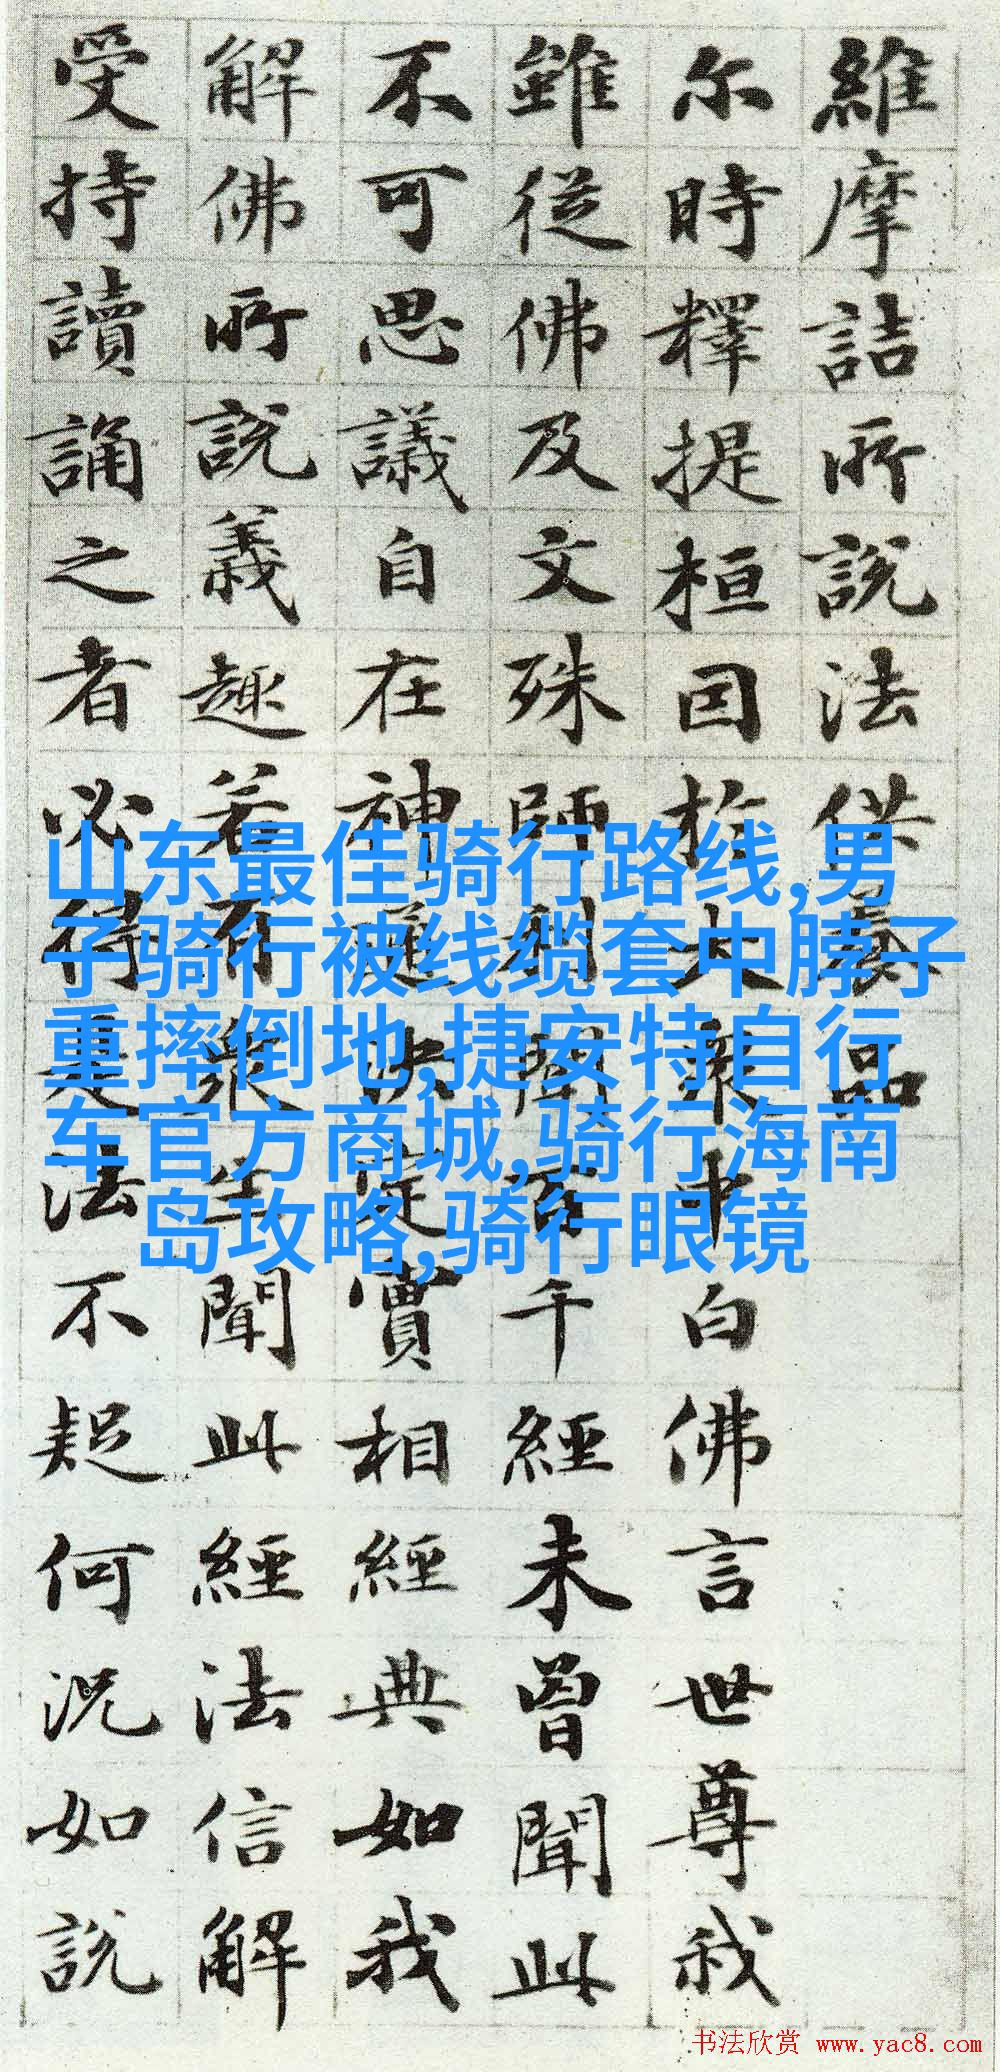 維摩詰所說法供養品
尔時釋提桓因於大衆中白佛言世尊我
雖從佛及文殊師利聞百千經未曾聞此
不可思議自在神通決定實相經典如我
解佛所說義趣若有衆生聞此經法信解
受持讀誦之者必得是法不疑何況如說
山东最佳骑行路线,男
子骑行被线缆套中脖子
重摔倒地,捷安特自行
车官方商城,骑行海南
岛攻略,骑行眼镜
书法欣赏 www.yac8.com